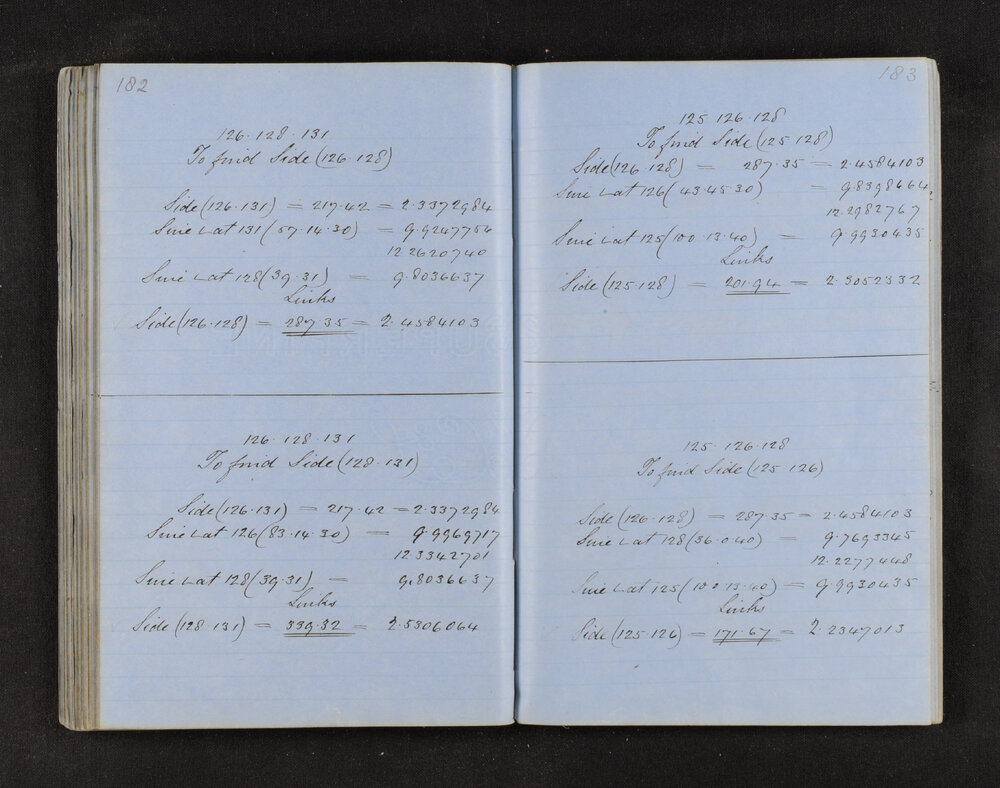 182
126·128·131
To find Side (126·128)
Side (126·131) = 217·42 = 2·3372984
Sine ∠ at 131 (57·14·30) = 9·9247756
12·2620740
Sine ∠ at 128 (39·31) = 9·8036637
Links
Side (126·128) = 287·35 = 2·4584103
126·128·131
To find Side (128·131)
Side (126·131) = 217·42 = 2·3372984
Sine ∠ at 126 (83·14·30) = 9·9969717
12·3342701
Sine ∠ at 128 (39·31) = 9·8036637
Links
Side (128·131) = 339·32 = 2·5306064
183
125·126·128
To find Side (125·128)
Side (126·128) = 287·35 = 2·4584103
Sine ∠ at 126 (43·45·30) = 9·8398664
12·2982767
Sine ∠ at 125 (100·13·40) = 9·9930435
Links
Side (125·128) = 201·94 = 2·3052332
125·126·128
To find Side (125·126)
Side (126·128) = 287·35 = 2·4584103
Sine ∠ at 128 (36·0·40) = 9·7693345
12·2277448
Sine ∠ at 125 (100·13·40) = 9·9930435
Links
Side (125·126) = 171·67 = 2·2347013